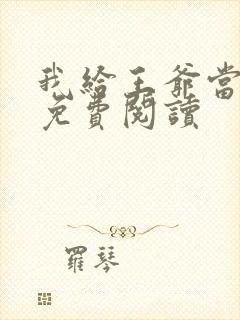 我給王爺當
免費閱讀
羅琴